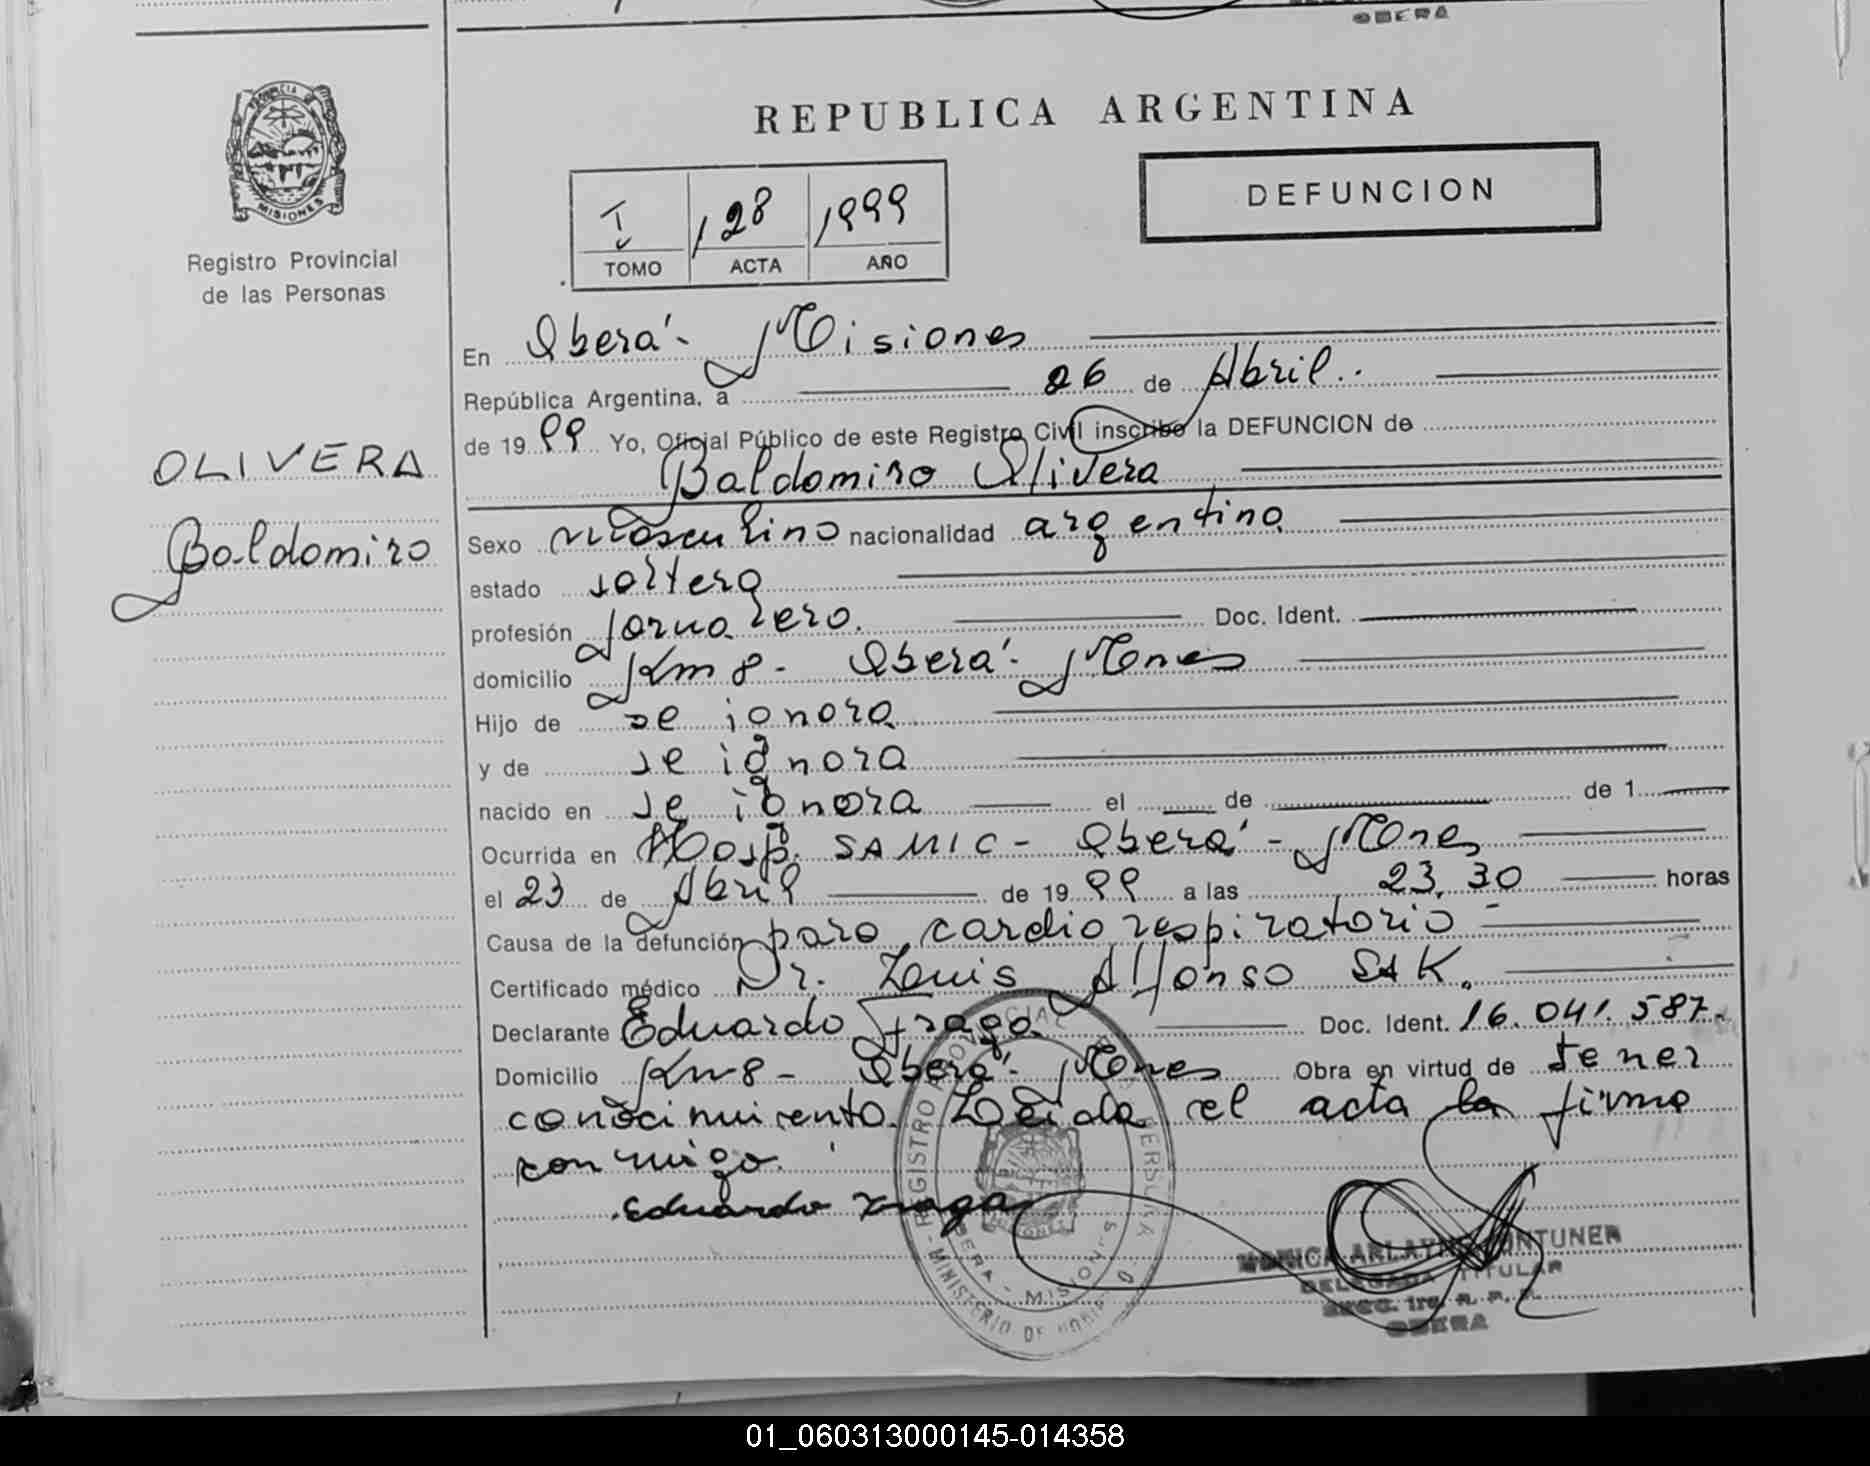 OBERA
PROVINCIA DE
MISIONES
Registro Provincial
de las Personas
REPUBLICA ARGENTINA
I 128 1999
TOMO ACTA AÑO
DEFUNCION
En Oberá - Misiones
República Argentina, a 26 de Abril
de 1999 Yo, Oficial Público de este Registro Civil inscribo la DEFUNCION de
Baldomiro Olivera
OLIVERA
Baldomiro
Sexo masculino nacionalidad argentina
estado soltero
profesión Jornalero. Doc. Ident.
domicilio Km 8 - Oberá - Mnes
Hijo de se ignora
y de se ignora
nacido en se ignora el de de 1
Ocurrida en Hosp. SAMIC - Oberá - Mnes
el 23 de Abril de 1999 a las 23,30 horas
Causa de la defunción paro cardio respiratorio -
Certificado médico Dr. Luis Alfonso SAK.
Declarante Eduardo Fraga Doc. Ident. 16.041.587.
Domicilio Km 8 - Oberá - Mnes Obra en virtud de tener
conocimiento. Leída el acta la firma
conmigo.
Eduardo Fraga
REGISTRO PROVINCIAL DE LAS PERSONAS - MINISTERIO DE
OBERA - MISIONES
MONICA
DELEGADA TITULAR
OBERA
01_060313000145-014358